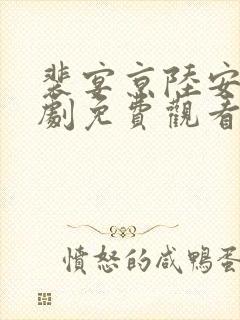 裴宴京陸安
劇免費觀看
憤怒的咸鴨蛋